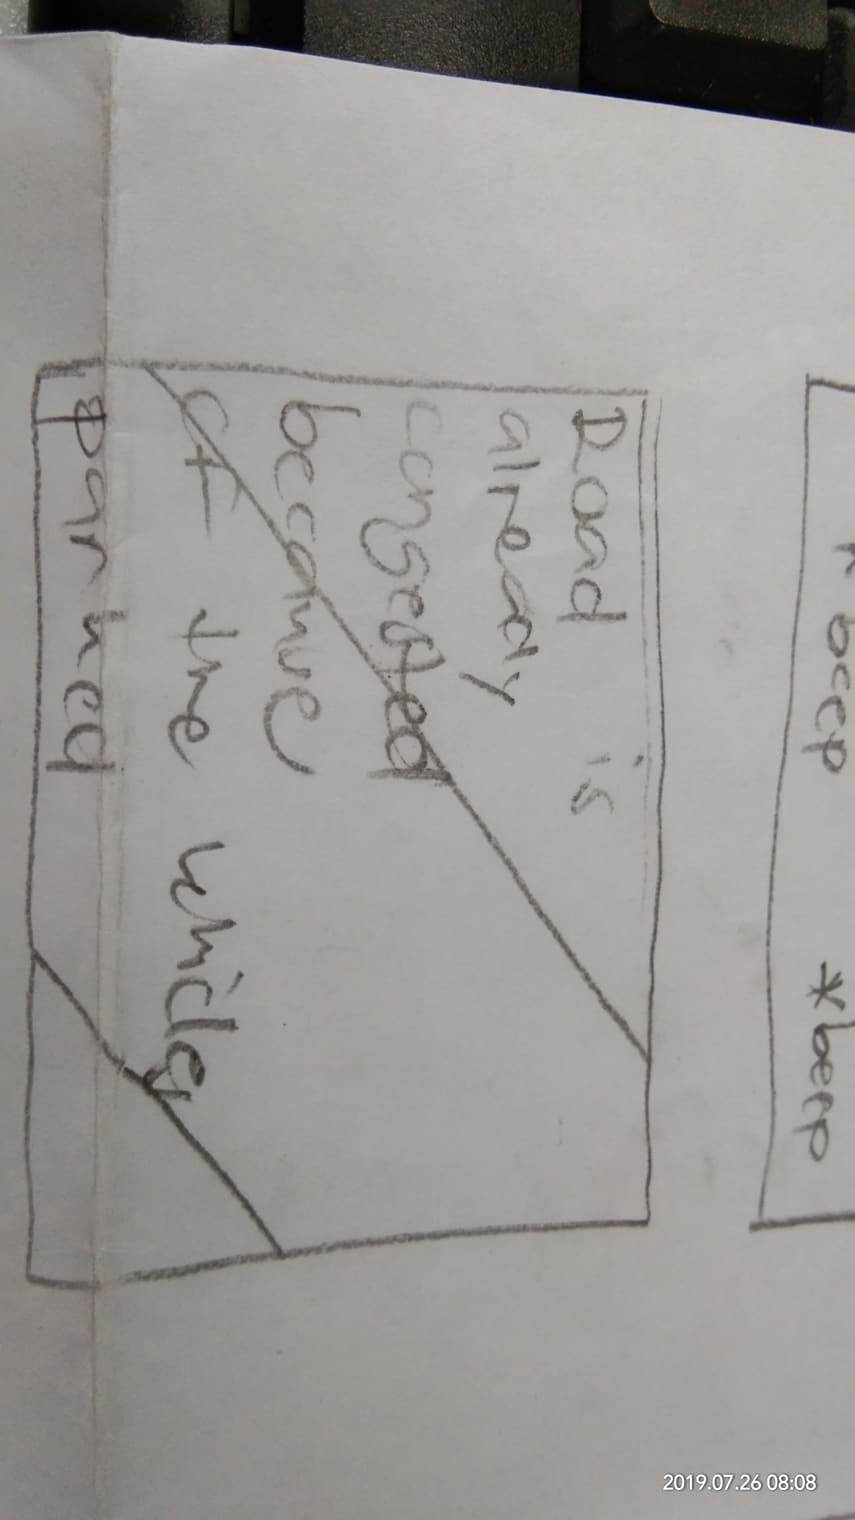 * beep *beep
Road is
already
congested
because
of the vehicle
parked
2019.07.26 08:08